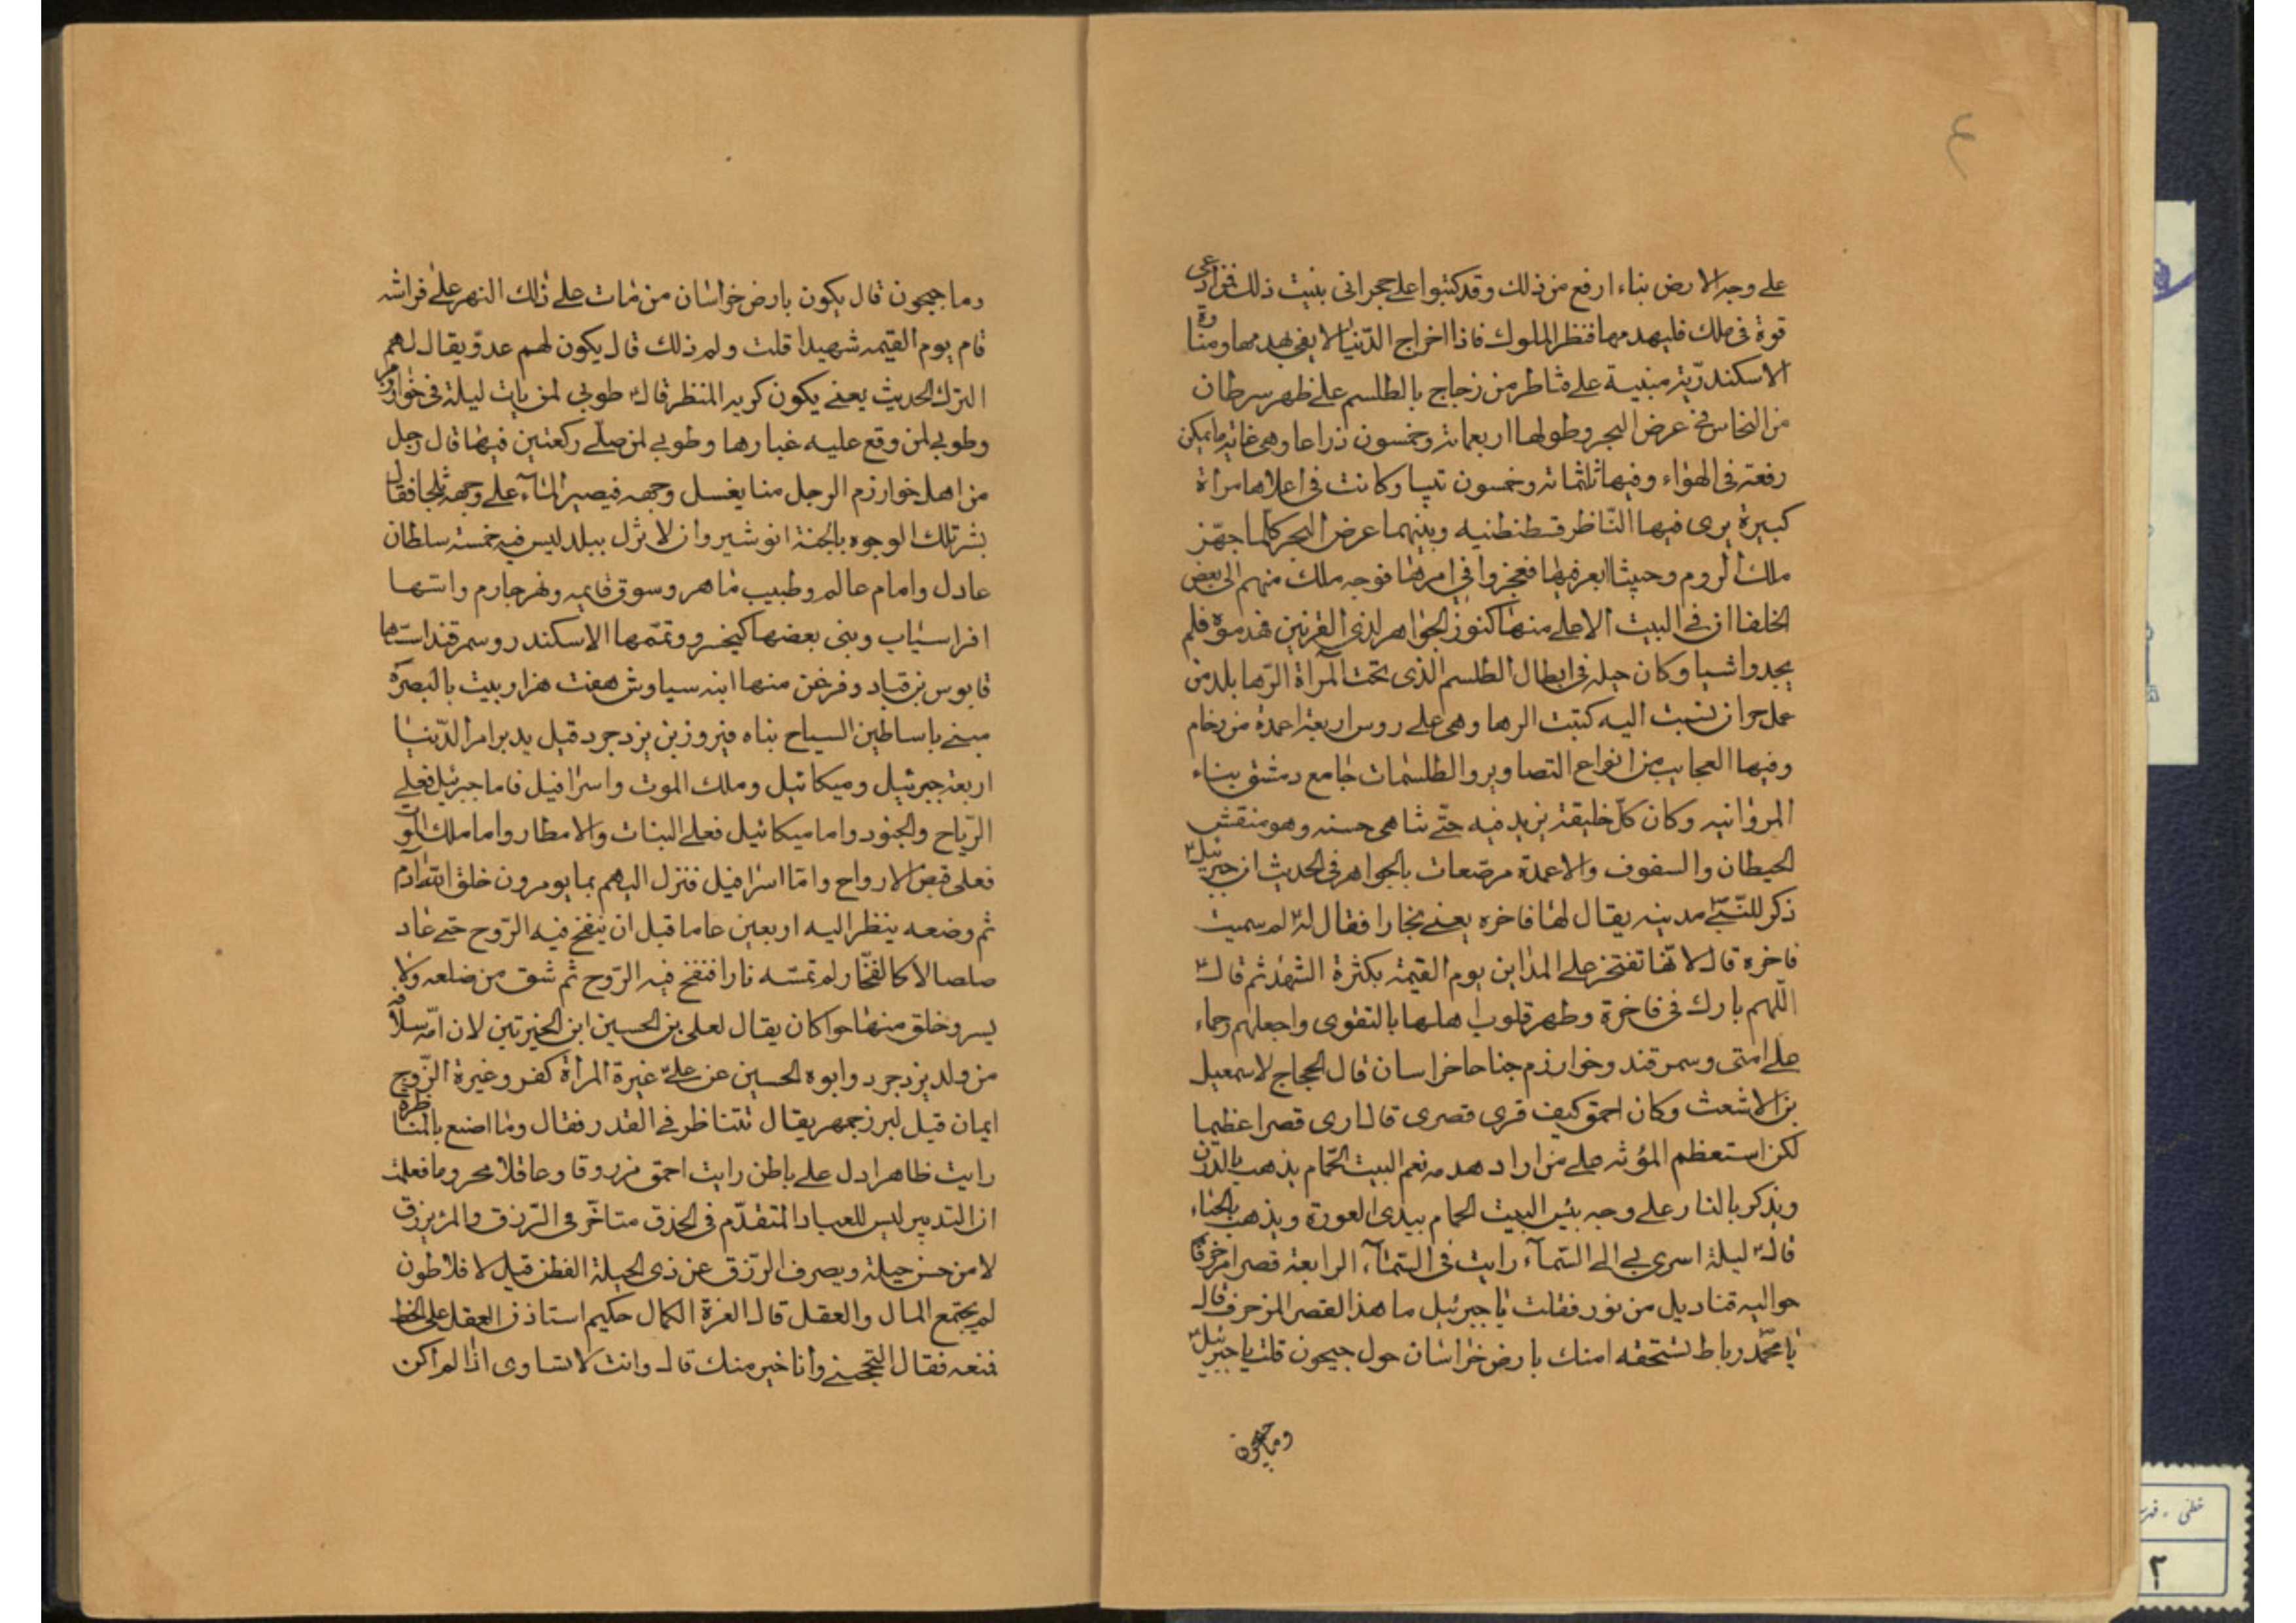 ٤
على وجه الارض بناء ارفع من ذلك وقد كتبوا على حجر انى بنيت ذلك فمن ادعى
قوة فى ملك فليهدمها فنظر الملوك فاذا اخراج الدّنيا لا يفى بهدمها ومنارة
الاسكندريّة مبنية على قناطر من زجاج بالطلسم على ظهر سرطان
من النحاس فى عرض البحر وطولها اربعماته وخمسون ذراعا وهى غاية ما يمكن
رفعته فى الهواء وفيها ثلثمائة وخمسون بيتا وكانت فى اعلاها مرأة
كبيرة يرى فيها النّاظر قسطنطنيه وبينهما عرض البحر كلّما جهّز
ملك الروم وحيشا ابعر فيها فعجزوا فى امرها فوجه ملك منهم الى بعض
الخلفا ان فى البيت الاعلى منها كنوز الجواهر لذى القرنين فهدموه فلم
يجدوا شيا وكان حيلة فى ابطال الطلسم الذى تحت المرأة الرّها بلد من
عمل حران نسبت اليه كتبت الرها وهى على روس اربعة اعمدة من رخام
وفيها العجايب من انواع التصاوير والطلسمات جامع دمشق بناء
المروانيه وكان كلّ خليفة يزيد فيه حتّى تناهى حسنه وهو منقش
الحيطان والسقوف والاعمدة مرصّعات بالجواهر فى الحديث ان جبرئيل
ذكر للنّبىّ مدينه يقال لها فاخره يعنى بخارا فقال له لم سميت
فاخره قال لانّها تفتخر على المداين يوم القيمة بكثرة الشهدا ثم قال
اللّهم بارك فى فاخرة وطهر قلوب اهلها بالتقوى واجعلهم رحماء
على امتى وسمرقند وخوارزم جناحا خراسان قال الحجاج لاسمعيل
بن الاشعث وكان احمق كيف ترى قصرى قال ارى قصرا عظيما
لكن استعظم المؤنه على من اراد هدمه نعم البيت الحّمام يذهب بالدرن
ويذكر بالنار على وجه بئس البيت الحمام يبدى العورة ويذهب بالحياء
قال ليلة اسرى بى الى السّمآء رايت فى السّمآء الرابعة قصرا مزخرفا
حواليه قناديل من نور فقلت يا جبرئيل ما هذا القصر المزخرف قال
يا محمّد رباط تستحقه امتك بارض خراسان حول جيحون قلت يا جبرئيل
وما جيحون
وما جيحون قال يكون بارض خراسان من مات على ذلك النهر على فراشه
قام يوم القيمه شهيدا قلت ولم ذلك قال يكون لهم عدوّ يقال لهم
الترك الحديث يعنى يكون كريه المنظر قال طوبى لمن بات ليلة فى خوارزم
وطوبى لمن وقع عليه غبارها وطوبى لمن صلّى ركعتين فيها قال رجل
من اهل خوارزم الرجل منا يغسل وجهه فيصير المآء على وجهه ثلجا فقال
بشر تلك الوجوه بالجنة انوشيروان لا تنزل ببلد ليس فيه خمسة سلطان
عادل وامام عالم وطبيب ماهر وسوق قايمه ونهر جار
افراسياب وبنى بعضها كيخسرو وتمّمها الاسكندر وسمرقند استّها
قابوس بن قباد وفرغ عن منها ابنه سياوش هفت هزار بيت بالبصرة
مبنى باساطين السياح بناه فيروز بن يزدجرد قيل يدبر امر الدّنيا
اربعة جبرئيل وميكائيل وملك الموت واسرافيل فاما جبرئيل فعلى
الرّياح والجنود واما ميكائيل فعلى النبات والامطار واما ملك الموت
فعلى قبض الارواح وامّا اسرافيل فنزل اليهم بما يومرون خلق اللّه آدم
ثم وضعه ينظر اليه اربعين عاما قبل ان ينفخ فيه الرّوح حتى عاد
صلصالا كالفخّار لم تمسّه نارا فنفخ فيه الرّوح ثم شق من ضلعه ولا
يسر وخلق منها حوا كان يقال لعلى بن الحسين ابن الخيرتين لان امّه سلافة
من ولد يزدجرد وابوه الحسين عن على غيرة المرأة كفر وغيرة الزّوج
ايمان قيل لبرزجمهر يقال تتناظر فى القدر فقال وما اصنع بالمناظرة
رايت ظاهرا دل على باطن رايت احمق مرزوقا وعاقلا محروما فعلمت
ان التدبير ليس للعباد المتقدّم فى الحذق متاخّر فى الرّزق والمرء يرزق
لا من حسن حيلة ويصرف الرّزق عن ذى الحيلة الفطن قيل لافلاطون
لم يجتمع المال والعقل قال لعزة الكمال حكيم استاذن العقل على الحظ
فمنعه فقال اتحجبنى وانا خير منك قال وانت لا تساوى اذا لم اكن
خطى - فهرست
٢